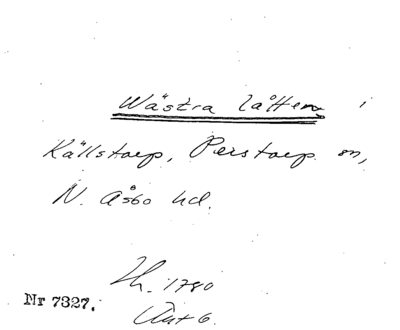 Wästra låtten i
Källstorp, Perstorp sn,
N. Åsbo hd.
Th. 1780
Nr 7327.
Akt 6.